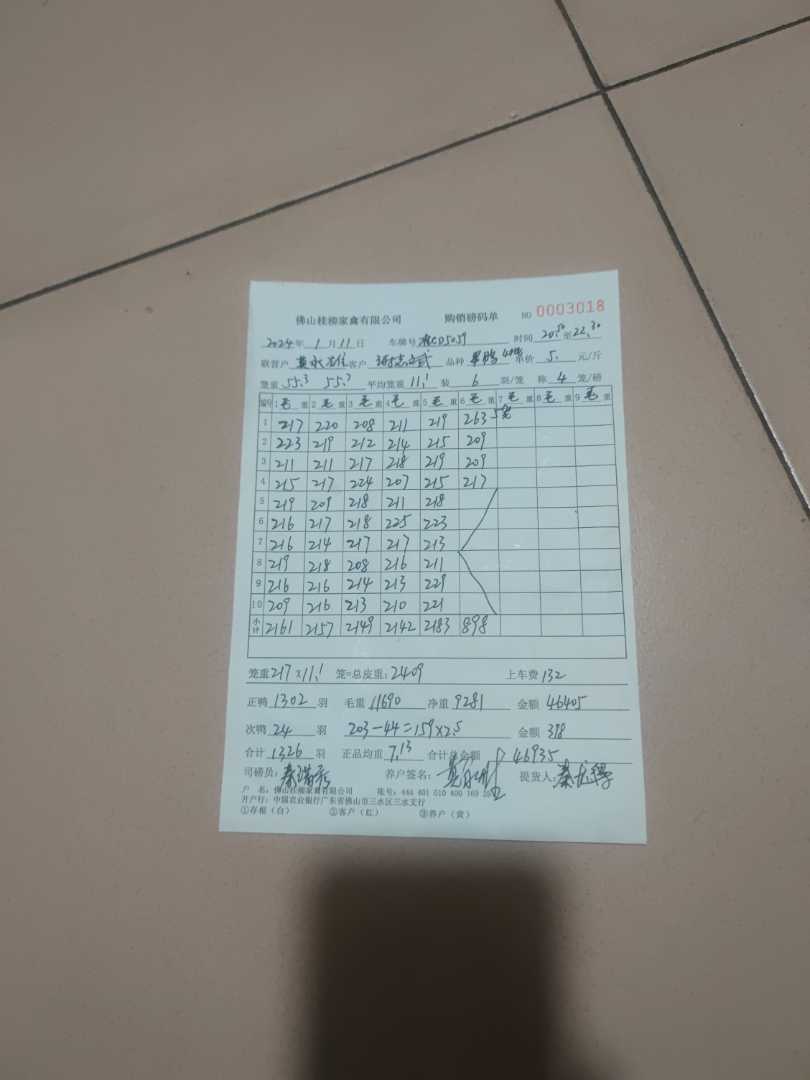 佛山桂柳家禽有限公司 购销磅码单 NO 0003018
2024年 1月 11日 车牌号 CD5059 时间 20:50至22:30
联营户 客户 品种 单价 5. 元/斤
笼重 55.3 55.7 平均笼重 11.1 装 6 羽/笼 称 4 笼/磅
编号 1毛重 2毛重 3毛重 4毛重 5毛重 6毛重 7毛重 8毛重 9毛重
1 217 220 208 211 219 263 5笼
2 223 219 212 214 215 209
3 211 211 217 218 219 209
4 215 217 224 207 215 217
5 219 209 218 211 218
6 216 217 218 225 223
7 216 214 217 217 213
8 219 218 208 216 211
9 216 216 214 213 229
10 209 216 213 210 221
小计 2161 2157 2149 2142 2183 898
笼重217×11.1 笼=总皮重:2409 上车费 132
正鸭 1302 羽 毛重 11690 净重 9281 金额 46405
次鸭 24 羽 203-44=159×2.5 金额 398
合计 1326 羽 正品均重 7.13 合计总金额 46935
司磅员: 养户签名: 提货人:
户 名:佛山桂柳家禽有限公司 账号:444 401 010 400 160
开户行:中国农业银行广东省佛山市三水区三水支行
①存根(白) ②客户(红) ③养户(黄)